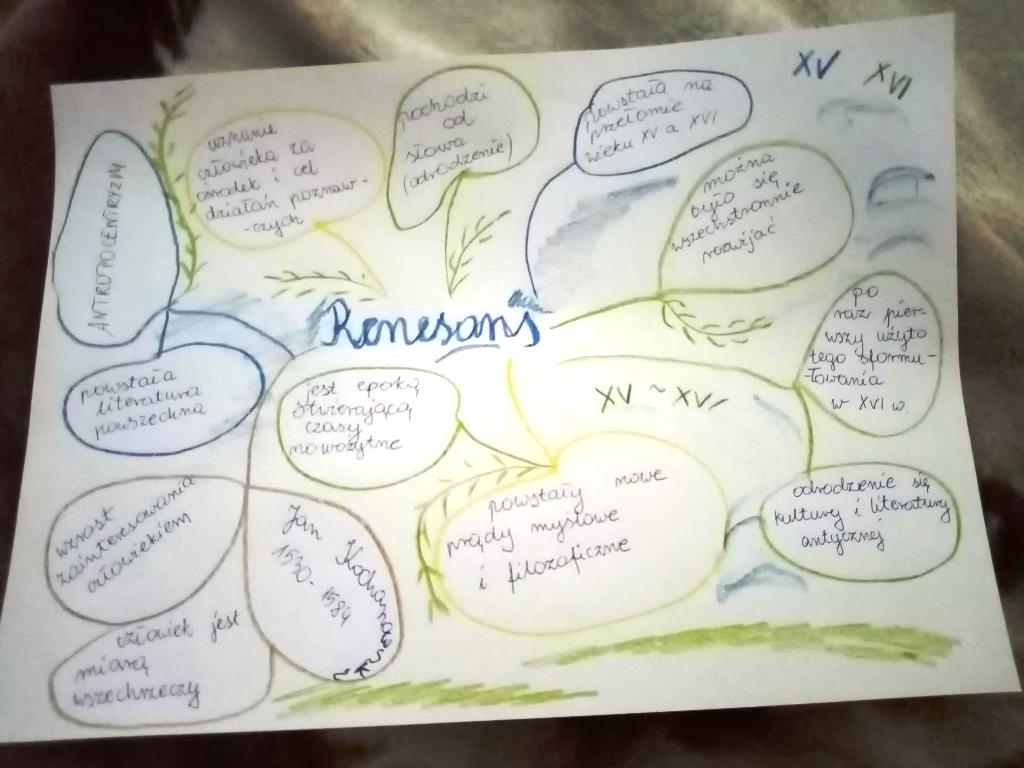 XV XVI
ANTROPOCENTRYZM
uznanie
człowieka za
ośrodek i cel
działań poznaw-
-czych
pochodzi
od
słowa
(odrodzenie)
powstała na
przełomie
wieku XV a XVI
można
było się
wszechstronnie
rozwijać
Renesans
po
raz pier-
wszy użyto
tego sformu-
łowania
w XVI w.
powstała
literatura
powszechna
jest epoką
otwierającą
czasy
nowożytne
XV ~ XVI
wzrost
zainteresowania
człowiekiem
Jan Kochanowski
1530-
1584
powstały nowe
prądy myślowe
i filozoficzne
odrodzenie się
kultury i literatury
antycznej
człowiek jest
miarą
wszechrzeczy